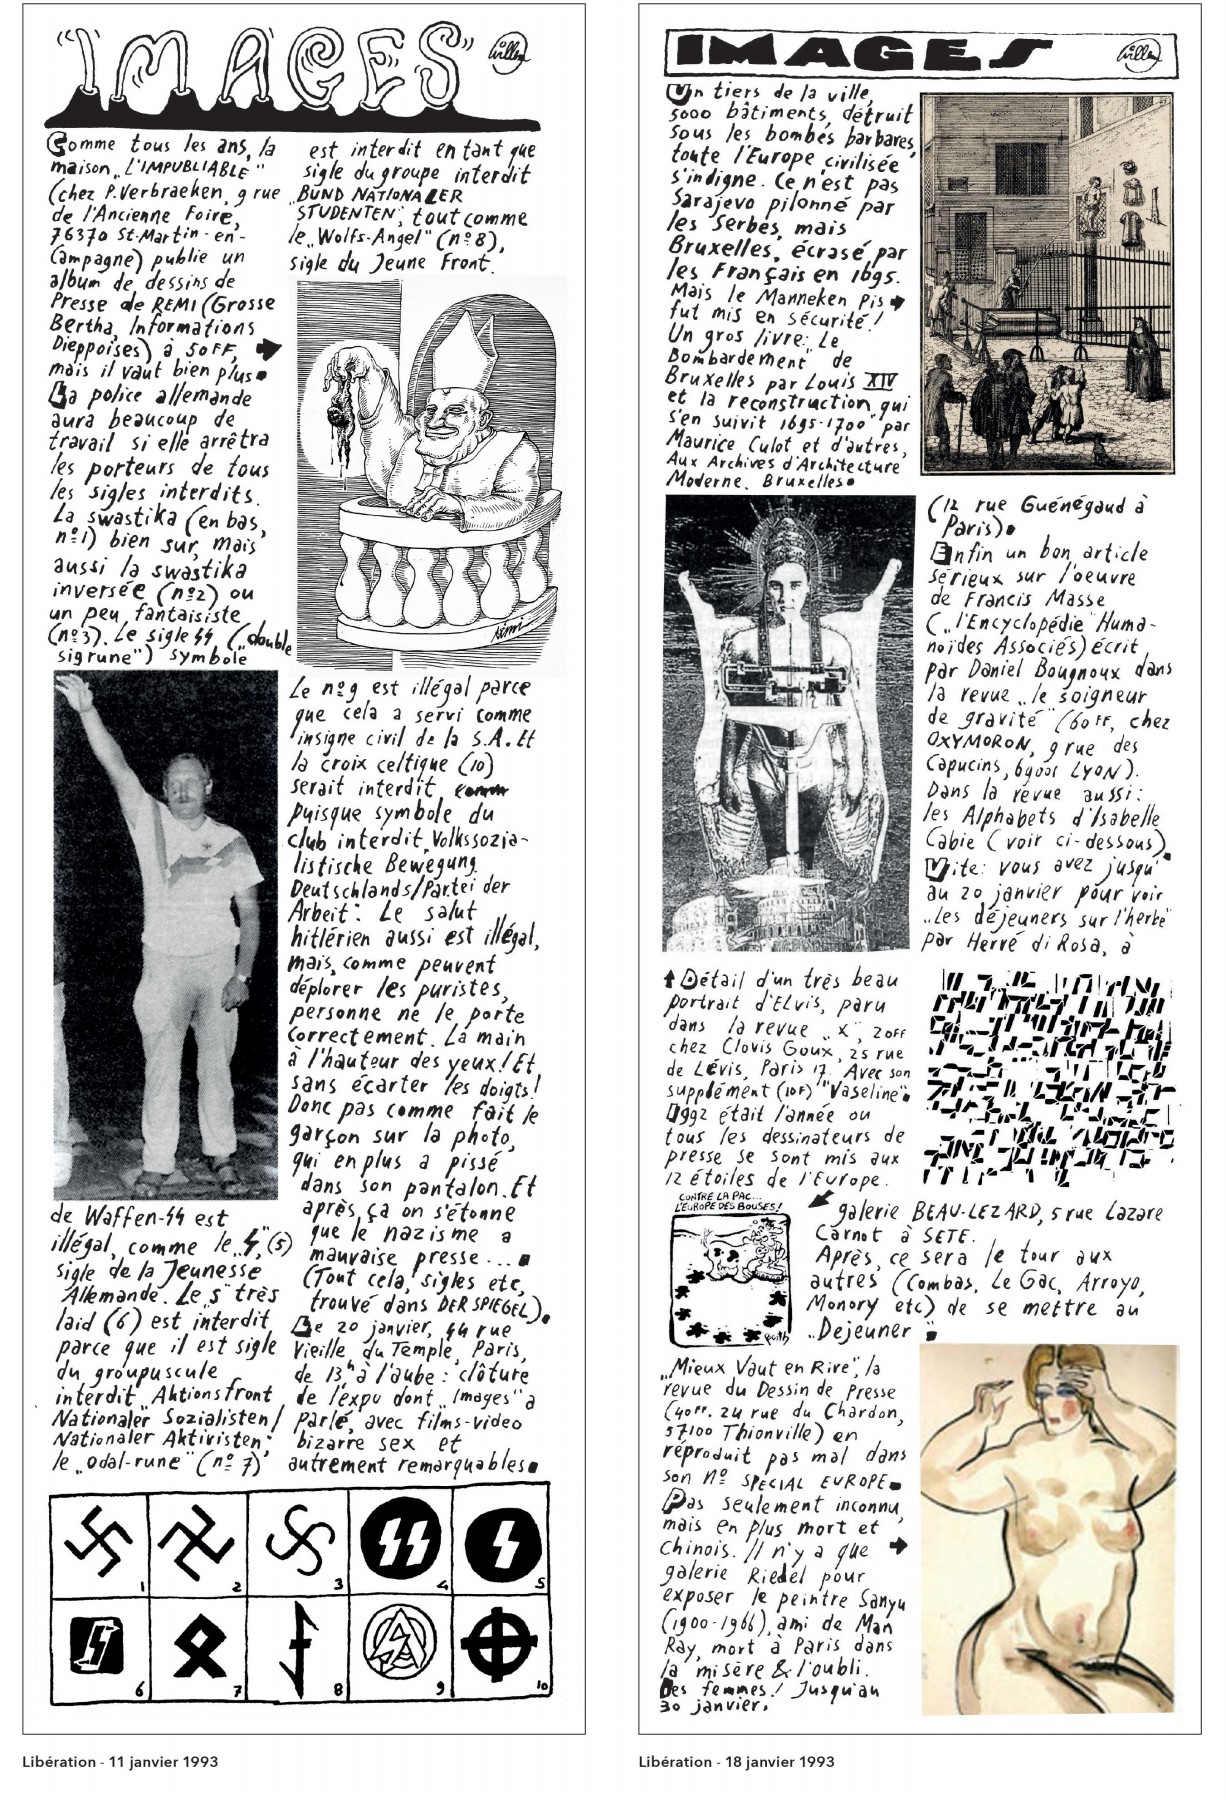 "IMAGES"
Willem
Comme tous les ans, la
maison „L'IMPUBLIABLE"
(chez P. Verbraeken, 9 rue
de l'Ancienne Foire,
76370 St-Martin-en-
Campagne) publie un
album de dessins de
Presse de REMI (Grosse
Bertha, Informations
Dieppoises) à 50FF,
mais il vaut bien plus.
La police allemande
aura beaucoup de
travail si elle arrêtra
les porteurs de tous
les sigles interdits.
La swastika (en bas,
nº1) bien sur, mais
aussi la swastika
inversée (nº2) ou
un peu fantaisiste
(nº3). Le sigle SS („double
sigrune") symbole
de Waffen-SS est
illégal, comme le „S", (5)
sigle de la Jeunesse
Allemande. Le „S" très
laid (6) est interdit
parce que il est sigle
du groupuscule
interdit „Aktionsfront
Nationaler Sozialisten/
Nationaler Aktivisten",
le „odal-rune" (nº 7)
est interdit en tant que
sigle du groupe interdit
„BUND NATIONALER
STUDENTEN", tout comme
le „Wolfs-Angel" (nº8),
sigle du Jeune Front.
Rémi
Le nº9 est illégal parce
que cela a servi comme
insigne civil de la S.A. Et
la croix celtique (10)
serait interdit
puisque symbole du
club interdit „Volkssozia-
listische Bewegung
Deutschlands/Partei der
Arbeit". Le salut
hitlérien aussi est illégal,
mais, comme peuvent
déplorer les puristes,
personne ne le porte
correctement. La main
à l'hauteur des yeux! Et
sans écarter les doigts!
Donc pas comme fait le
garçon sur la photo,
qui en plus a pissé
dans son pantalon. Et
après, ça on s'étonne
que le nazisme a
mauvaise presse...
(Tout cela, sigles etc,
trouvé dans DER SPIEGEL).
Le 20 janvier, 44 rue
Vieille du Temple, Paris,
de 13h à l'aube: clôture
de l'expo dont „Images" a
parlé, avec films-video
bizarre sex et
autrement remarquables.
1
2
3
4
5
6
7
8
9
10
Libération - 11 janvier 1993
IMAGES
Willem
Un tiers de la ville,
5000 bâtiments, détruit
sous les bombes barbares,
toute l'Europe civilisée
s'indigne. Ce n'est pas
Sarajevo pilonné par
les Serbes, mais
Bruxelles, écrasé par
les Français en 1695.
Mais le Manneken Pis
fut mis en sécurité!
Un gros livre: „Le
Bombardement" de
Bruxelles par Louis XIV
et la reconstruction qui
s'en suivit 1695-1700" par
Maurice Culot et d'autres,
Aux Archives d'Architecture
Moderne. Bruxelles.
(12 rue Guénégaud à
Paris).
Enfin un bon article
sérieux sur l'oeuvre
de Francis Masse
(„l'Encyclopédie" Huma-
noïdes Associés) écrit
par Daniel Bougnoux dans
la revue „le soigneur
de gravité" (60FF, chez
OXYMORON, 9 rue des
Capucins, 69001 LYON).
Dans la revue aussi:
les Alphabets d'Isabelle
Cabie (voir ci-dessous).
Vite: vous avez jusqu'
au 20 janvier pour voir
„Les déjeuners sur l'herbe"
par Hervé di Rosa, à
Détail d'un très beau
portrait d'Elvis, paru
dans la revue „X", 20FF
chez Clovis Goux, 25 rue
de Lévis, Paris 17. Avec son
supplément (10F) "Vaseline".
1992 était l'année ou
tous les dessinateurs de
presse se sont mis aux
12 étoiles de l'Europe.
CONTRE LA PAC...
L'EUROPE DES BOUSES!
galerie BEAU-LEZARD, 5 rue Lazare
Carnot à SETE.
Après, ce sera le tour aux
autres (Combas, Le Gac, Arroyo,
Monory etc) de se mettre au
„Dejeuner".
„Mieux Vaut en Rire", la
revue du Dessin de Presse
(40FF. 24 rue du Chardon,
57100 Thionville) en
réproduit pas mal dans
son Nº SPECIAL EUROPE.
Pas seulement inconnu,
mais en plus mort et
chinois. Il n'y a que
galerie Riedel pour
exposer le peintre Sanyu
(1900-1966), ami de Man
Ray, mort à Paris dans
la misère & l'oubli.
Des femmes! Jusqu'au
30 janvier.
Libération - 18 janvier 1993